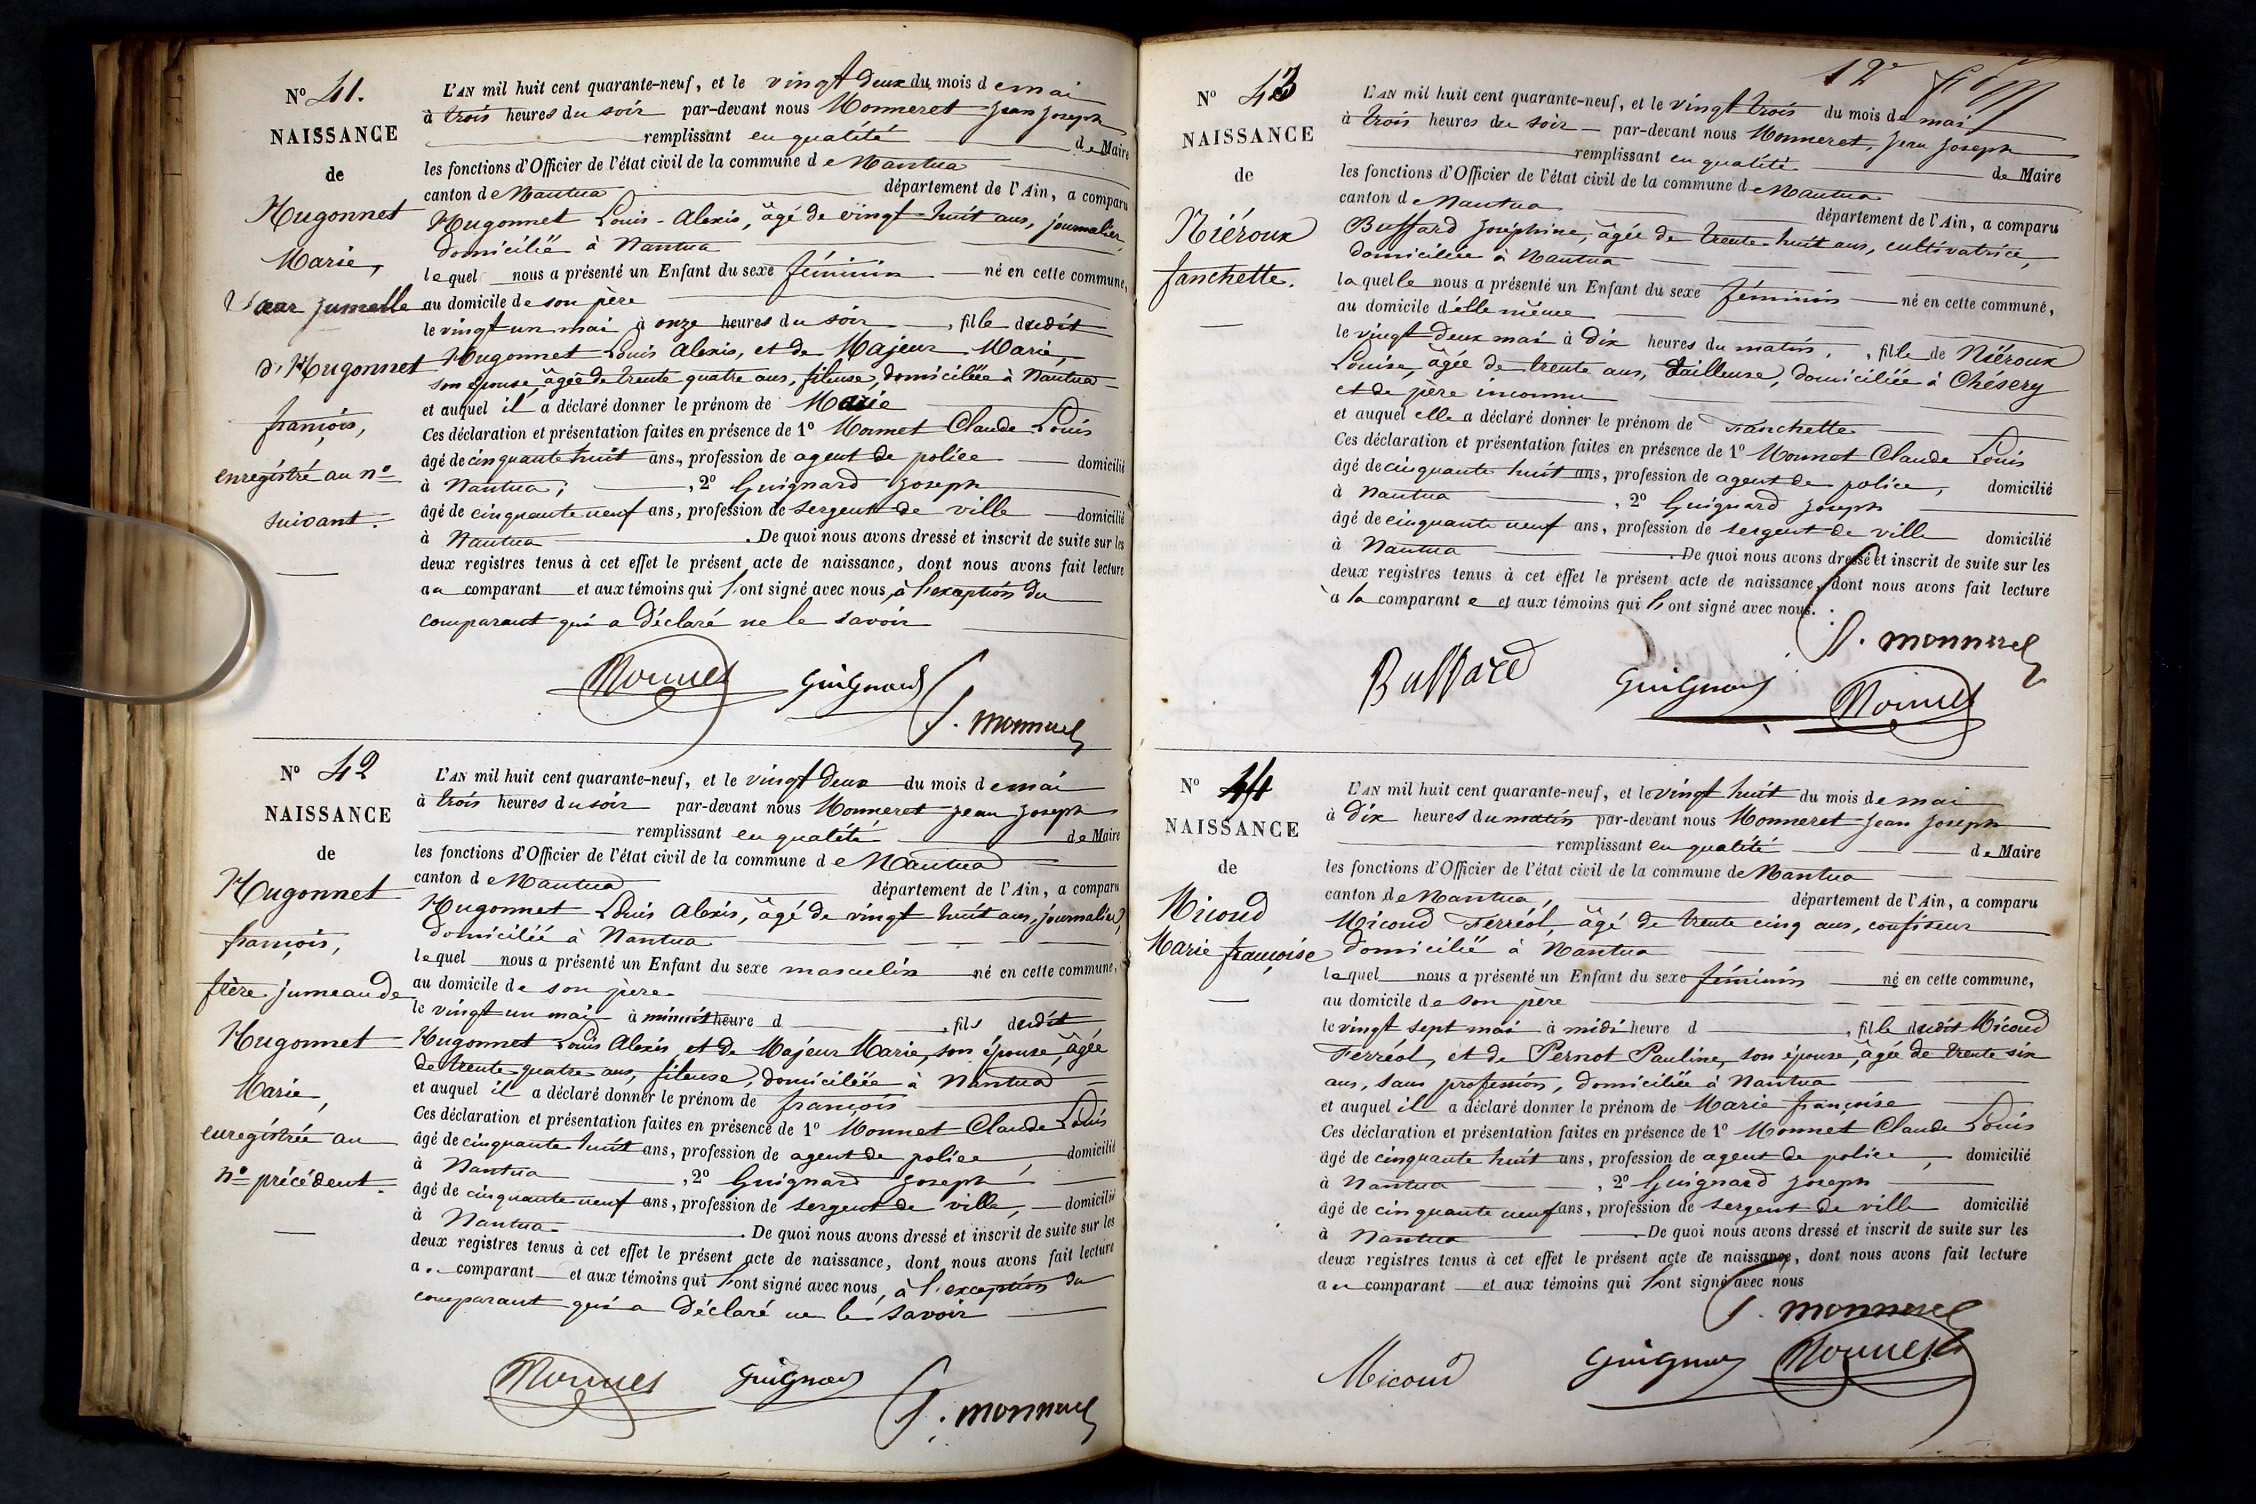 N.º 41.
NAISSANCE
de
Hugonnet
Marie,
sœur jumelle
d'Hugonnet
françois,
enregistré au nº
suivant.
L'AN mil huit cent quarante-neuf, et le vingt deux du mois de mai
à trois heures du soir par-devant nous Monneret Jean Joseph
remplissant en qualité de Maire
les fonctions d'Officier de l'état civil de la commune de Nantua
canton de Nantua département de l'Ain, a comparu
Hugonnet Louis-Alexis, âgé de vingt-huit ans, journalier,
domicilié à Nantua
lequel nous a présenté un Enfant du sexe féminin né en cette commune,
au domicile de son père
le vingt un mai à onze heures du soir, fille dudit
Hugonnet Louis Alexis, et de Majeur Marie,
son épouse, âgée de trente quatre ans, fileuse, domiciliée à Nantua
et auquel il a déclaré donner le prénom de Marie
Ces déclaration et présentation faites en présence de 1º Monnet Claude Louis
âgé de cinquante huit ans, profession de agent de police domicilié
à Nantua; , 2º Guignard Joseph
âgé de cinquante neuf ans, profession de sergent de ville domicilié
à Nantua. De quoi nous avons dressé et inscrit de suite sur les
deux registres tenus à cet effet le présent acte de naissance, dont nous avons fait lecture
au comparant et aux témoins qui l'ont signé avec nous, à l'exception du
comparant qui a déclaré ne le savoir
Monnet Guignard
J. Monneret
Nº 42
NAISSANCE
de
Hugonnet
françois,
frère jumeau de
Hugonnet
Marie,
enregistrée au
nº précédent.
L'AN mil huit cent quarante-neuf, et le vingt deux du mois de mai
à trois heures du soir par-devant nous Monneret Jean Joseph
remplissant en qualité de Maire
les fonctions d'Officier de l'état civil de la commune de Nantua
canton de Nantua département de l'Ain, a comparu
Hugonnet Louis Alexis, âgé de vingt huit ans, journalier,
domicilié à Nantua
lequel nous a présenté un Enfant du sexe masculin né en cette commune,
au domicile de son père
le vingt un mai à minuit heure d , fils dudit
Hugonnet Louis Alexis et de Majeur Marie, son épouse, âgée
de trente quatre ans, fileuse, domiciliée à Nantua
et auquel il a déclaré donner le prénom de françois
Ces déclaration et présentation faites en présence de 1º Monnet Claude Louis
âgé de cinquante huit ans, profession de agent de police, domicilié
à Nantua , 2º Guignard Joseph
âgé de cinquante neuf ans, profession de sergent de ville, domicilié
à Nantua. De quoi nous avons dressé et inscrit de suite sur les
deux registres tenus à cet effet le présent acte de naissance, dont nous avons fait lecture
au comparant et aux témoins qui l'ont signé avec nous, à l'exception du
comparant qui a déclaré ne le savoir
Monnet Guignard
J. Monneret
12e
Nº 43
NAISSANCE
de
Niéroux
fanchette.
L'AN mil huit cent quarante-neuf, et le vingt trois du mois de mai
à trois heures du soir par-devant nous Monneret, Jean Joseph
remplissant en qualité de Maire
les fonctions d'Officier de l'état civil de la commune de Nantua
canton de Nantua département de l'Ain, a comparu
Buffard Joséphine, âgée de trente huit ans, cultivatrice,
domiciliée à Nantua
laquelle nous a présenté un Enfant du sexe féminin né en cette commune,
au domicile d'elle même
le vingt deux mai à dix heures du matin, fille de Niéroux
Louise, âgée de trente ans, tailleuse, domiciliée à Chésery
et de père inconnu
et auquel elle a déclaré donner le prénom de Fanchette
Ces déclaration et présentation faites en présence de 1º Monnet Claude Louis
âgé de cinquante huit ans, profession de agent de police, domicilié
à Nantua , 2º Guignard Joseph
âgé de cinquante neuf ans, profession de sergent de ville domicilié
à Nantua. De quoi nous avons dressé et inscrit de suite sur les
deux registres tenus à cet effet le présent acte de naissance, dont nous avons fait lecture
à la comparante et aux témoins qui l'ont signé avec nous.
J. Monneret
Buffard Guignard Monnet
Nº 44
NAISSANCE
de
Micoud
Marie françoise
L'AN mil huit cent quarante-neuf, et le vingt huit du mois de mai
à dix heures du matin par-devant nous Monneret Jean Joseph
remplissant en qualité de Maire
les fonctions d'Officier de l'état civil de la commune de Nantua
canton de Nantua, département de l'Ain, a comparu
Micoud Ferréol, âgé de trente cinq ans, confiseur
domicilié à Nantua
lequel nous a présenté un Enfant du sexe féminin né en cette commune,
au domicile de son père
le vingt sept mai à midi heure d , fille dudit Micoud
Ferréol, et de Pernot Pauline, son épouse, âgée de trente six
ans, sans profession, domiciliée à Nantua
et auquel il a déclaré donner le prénom de Marie françoise
Ces déclaration et présentation faites en présence de 1º Monnet Claude Louis
âgé de cinquante huit ans, profession de agent de police, domicilié
à Nantua , 2º Guignard Joseph
âgé de cinquante neuf ans, profession de sergent de ville domicilié
à Nantua. De quoi nous avons dressé et inscrit de suite sur les
deux registres tenus à cet effet le présent acte de naissance, dont nous avons fait lecture
au comparant et aux témoins qui l'ont signé avec nous
J. Monneret
Micoud Guignard Monnet